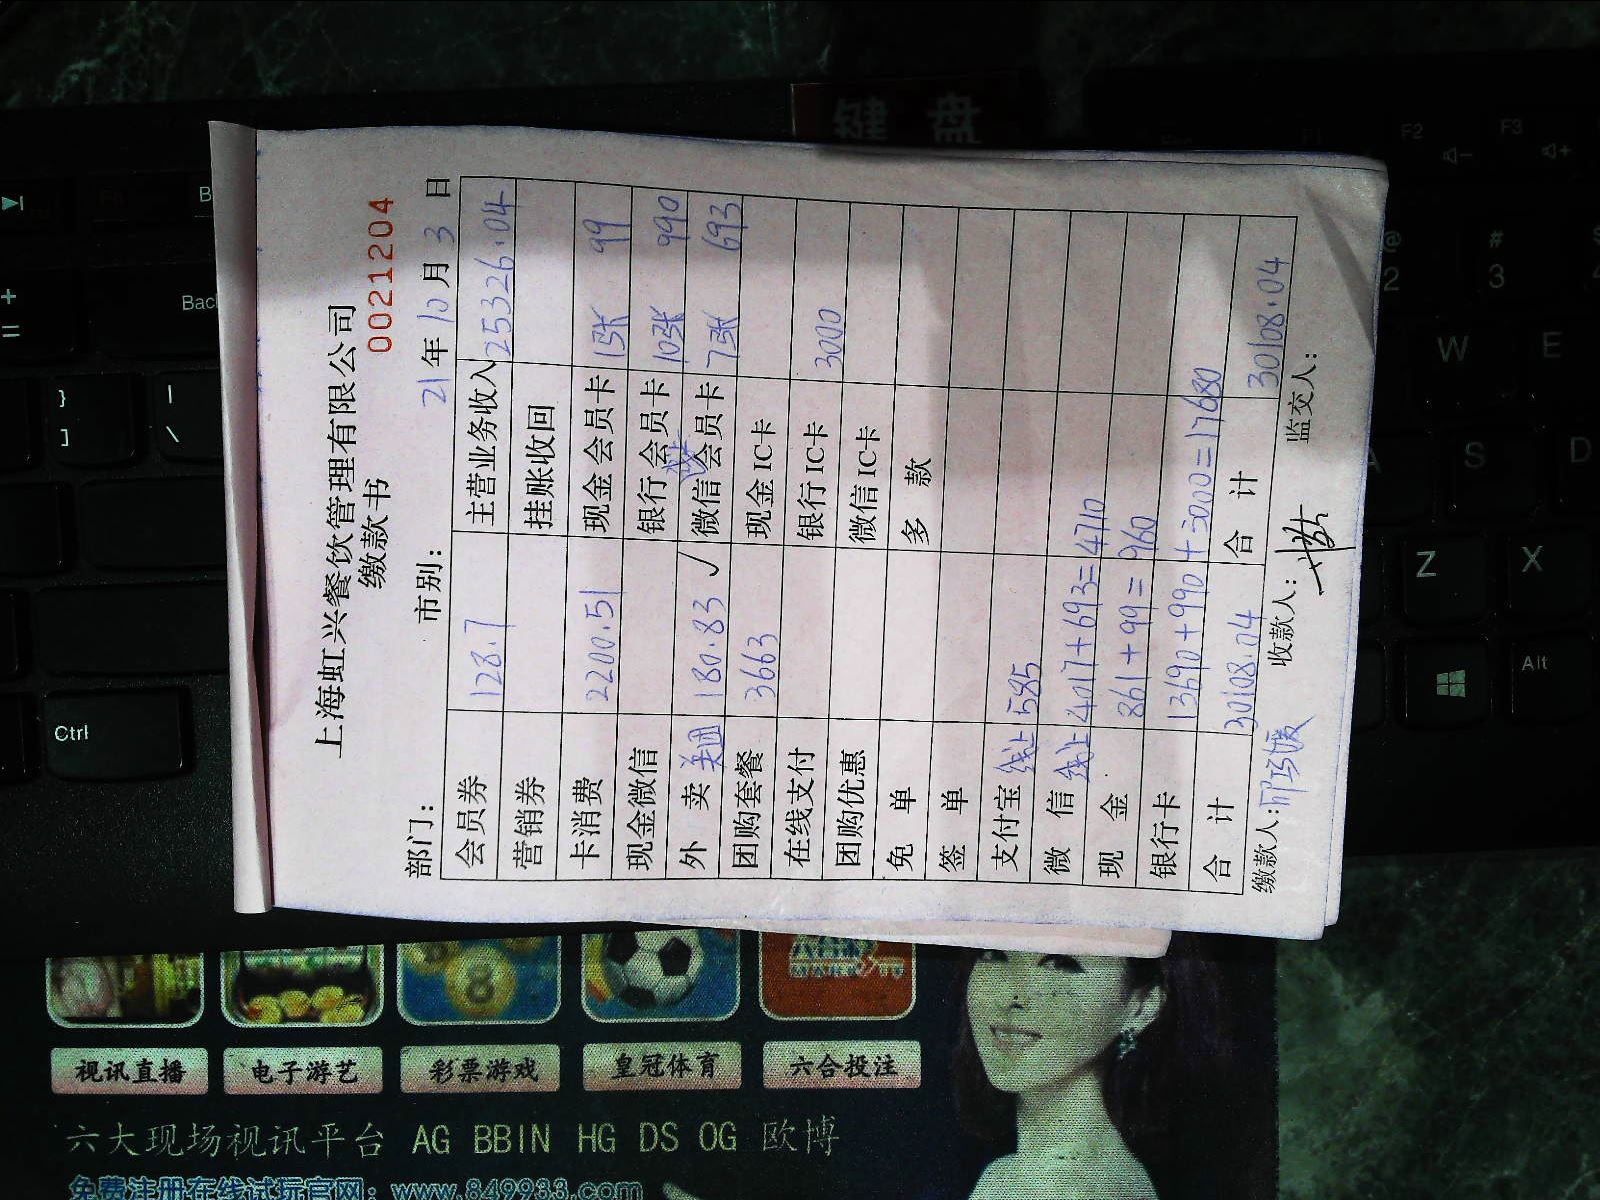 键 盘
上海虹兴餐饮管理有限公司
缴款书 0021204
部门： 市别： 21年10月3日
会员券 128.7 主营业务收入 25326.04
营销券 挂账收回
卡消费 2200.51 现金会员卡 1张 99
现金微信 银行会员卡 10张 990
外 卖 美团 180.83 ✓ 微信会员卡 7张 693
团购套餐 3663 现金IC卡
在线支付 银行IC卡 3000
团购优惠 微信IC卡
免 单 多 款
签 单
支付宝 线上 585
微 信 线上 4017+693=4710
现 金 861+99=960
银行卡 13690+990+3000=17680
合 计 30108.04 合 计 30108.04
缴款人： 收款人： 监交人：
Ctrl
Back
}
]
|
\
+
=
F2
F3
@
2
#
3
W
E
A
S
D
Z
X
Alt
视讯直播 电子游艺 彩票游戏 皇冠体育 六合投注
六大现场视讯平台 AG BBIN HG DS OG 欧博
免费注册在线试玩官网：www.849933.com